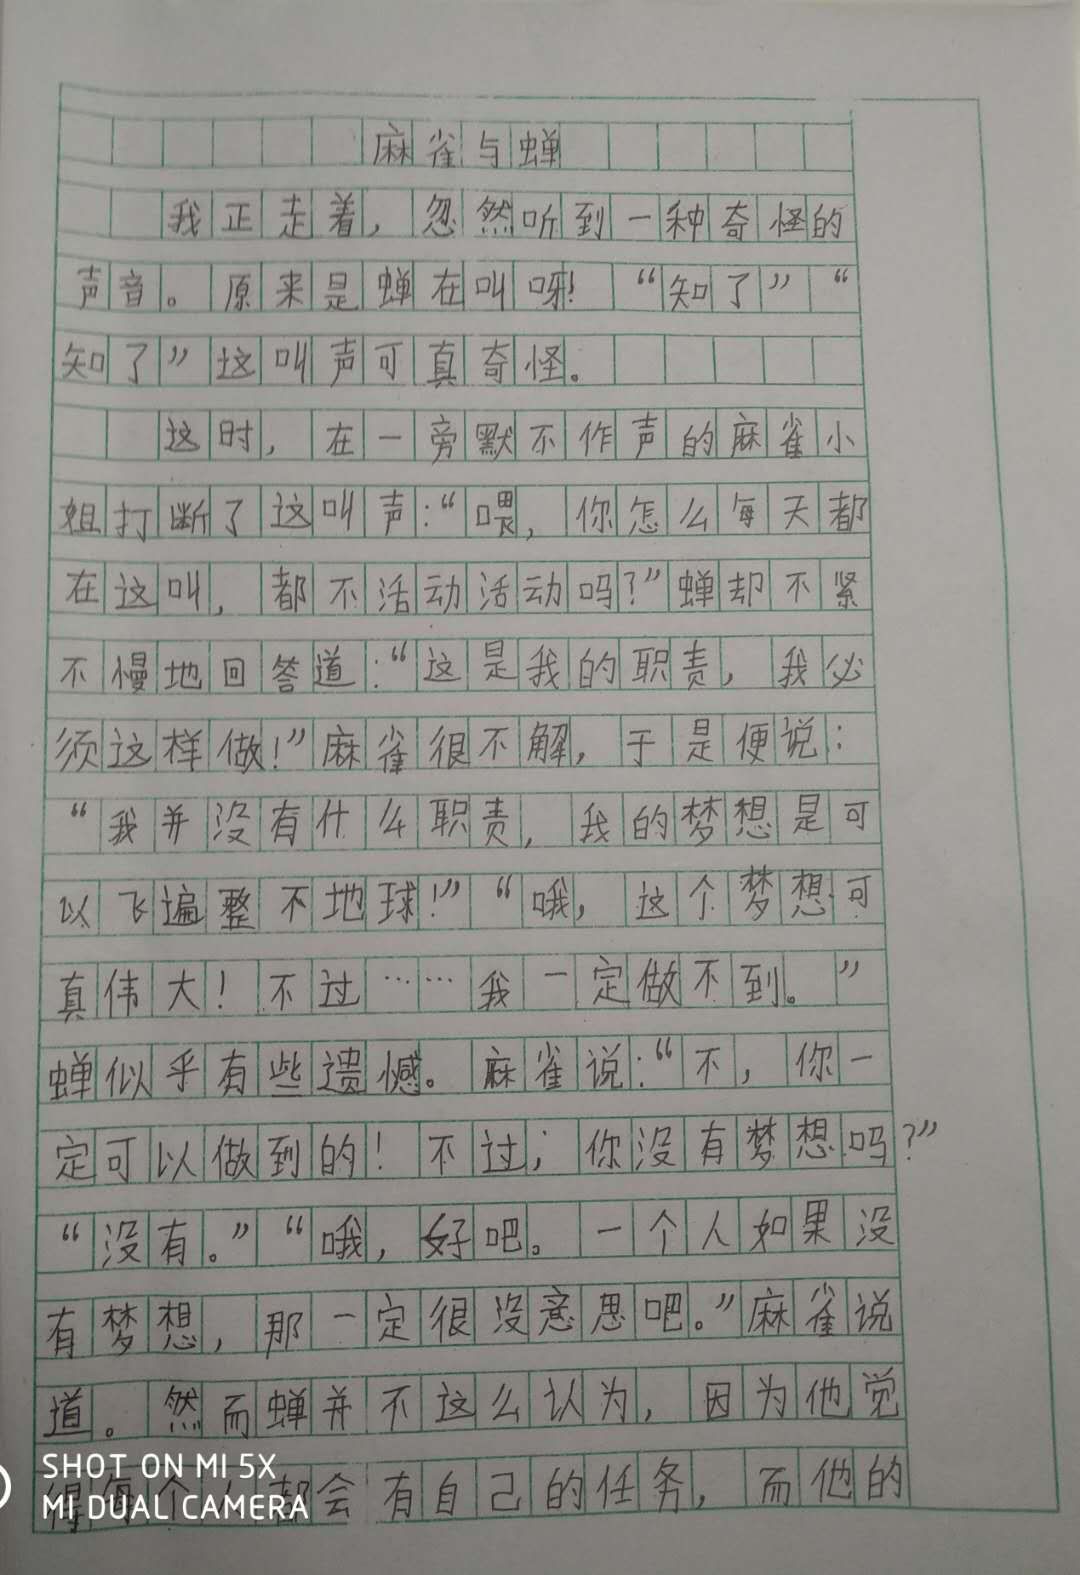 麻雀与蝉
我正走着，忽然听到一种奇怪的
声音。原来是蝉在叫呀！“知了”“
知了”这叫声可真奇怪。
这时，在一旁默不作声的麻雀小
姐打断了这叫声：“喂，你怎么每天都
在这叫，都不活动活动吗？”蝉却不紧
不慢地回答道：“这是我的职责，我必
须这样做！”麻雀很不解，于是便说：
“我并没有什么职责，我的梦想是可
以飞遍整不地球！”“哦，这个梦想可
真伟大！不过……我一定做不到。”
蝉似乎有些遗憾。麻雀说：“不，你一
定可以做到的！不过；你没有梦想吗？”
“没有。”“哦，好吧。一个人如果没
有梦想，那一定很没意思吧。”麻雀说
道。然而蝉并不这么认为，因为他觉
得每个人都会有自己的任务，而他的
SHOT ON MI 5X
MI DUAL CAMERA